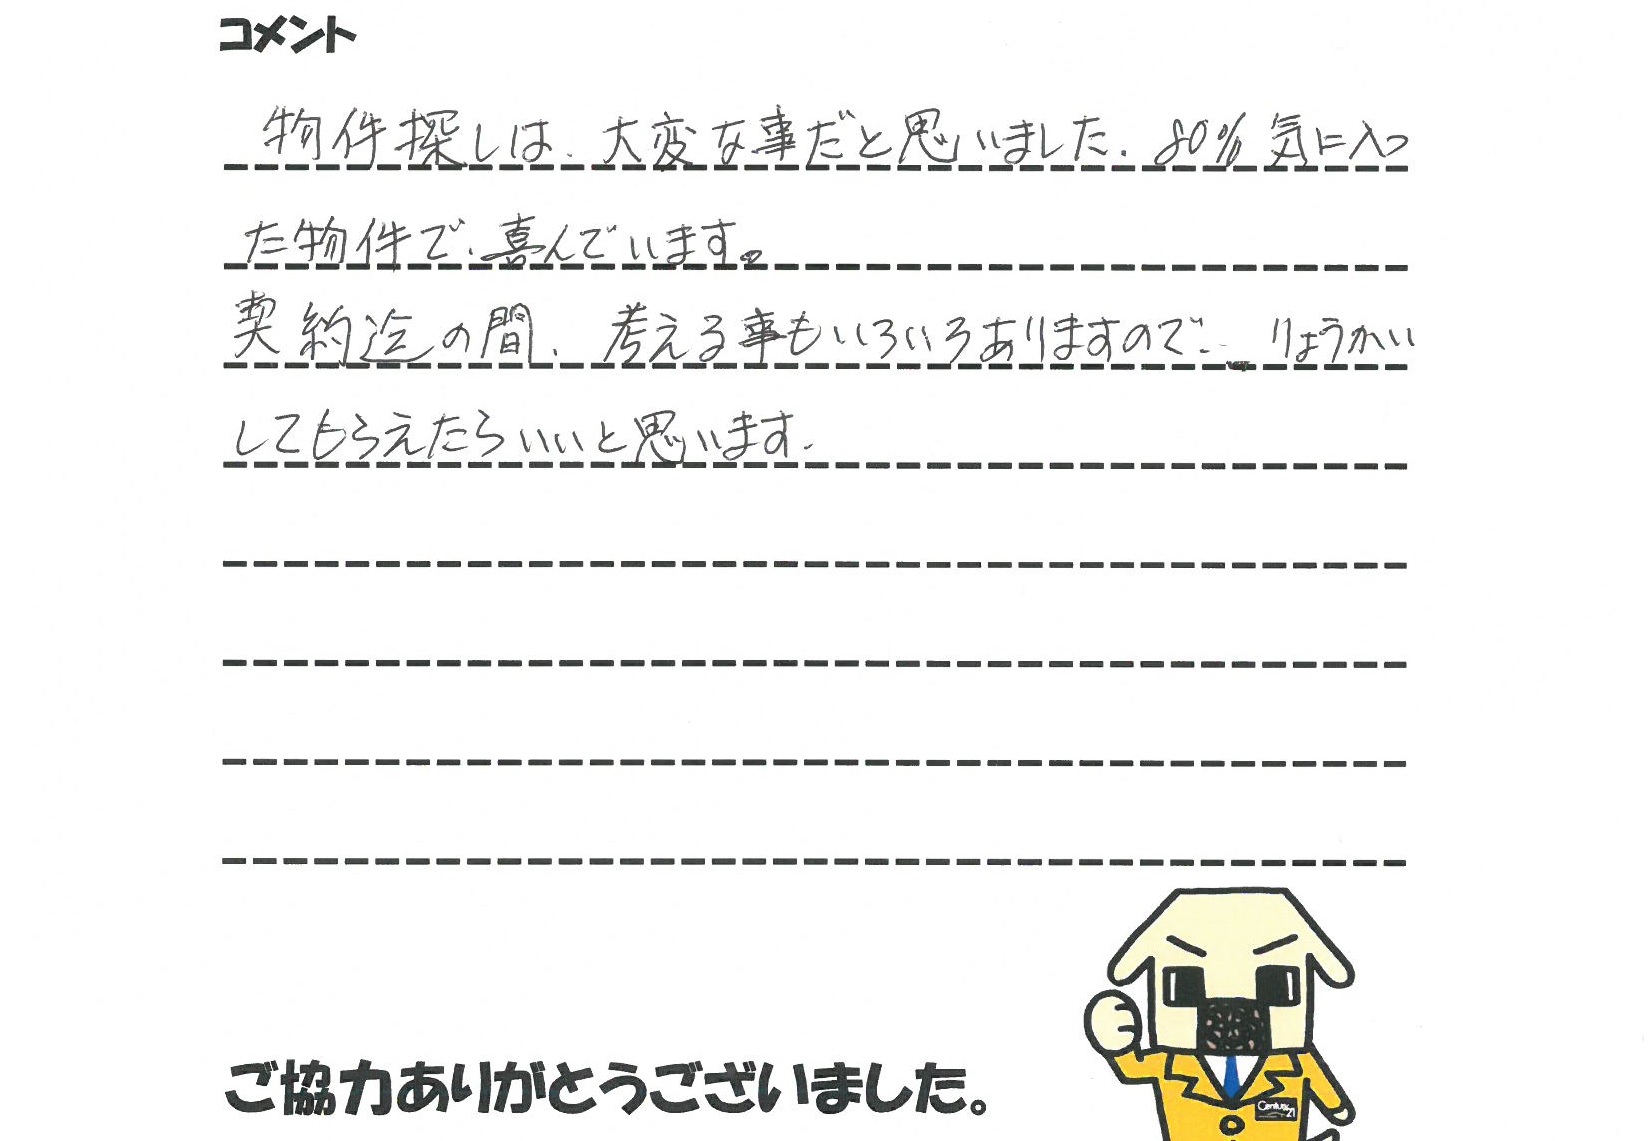 コメント
物件探しは、大変な事だと思いました。80%気に入っ
た物件で、喜んでいます。
契約迄の間、考える事もいろいろありますので、りょうかい
してもらえたらいいと思います。
ご協力ありがとうございました。
Century 21